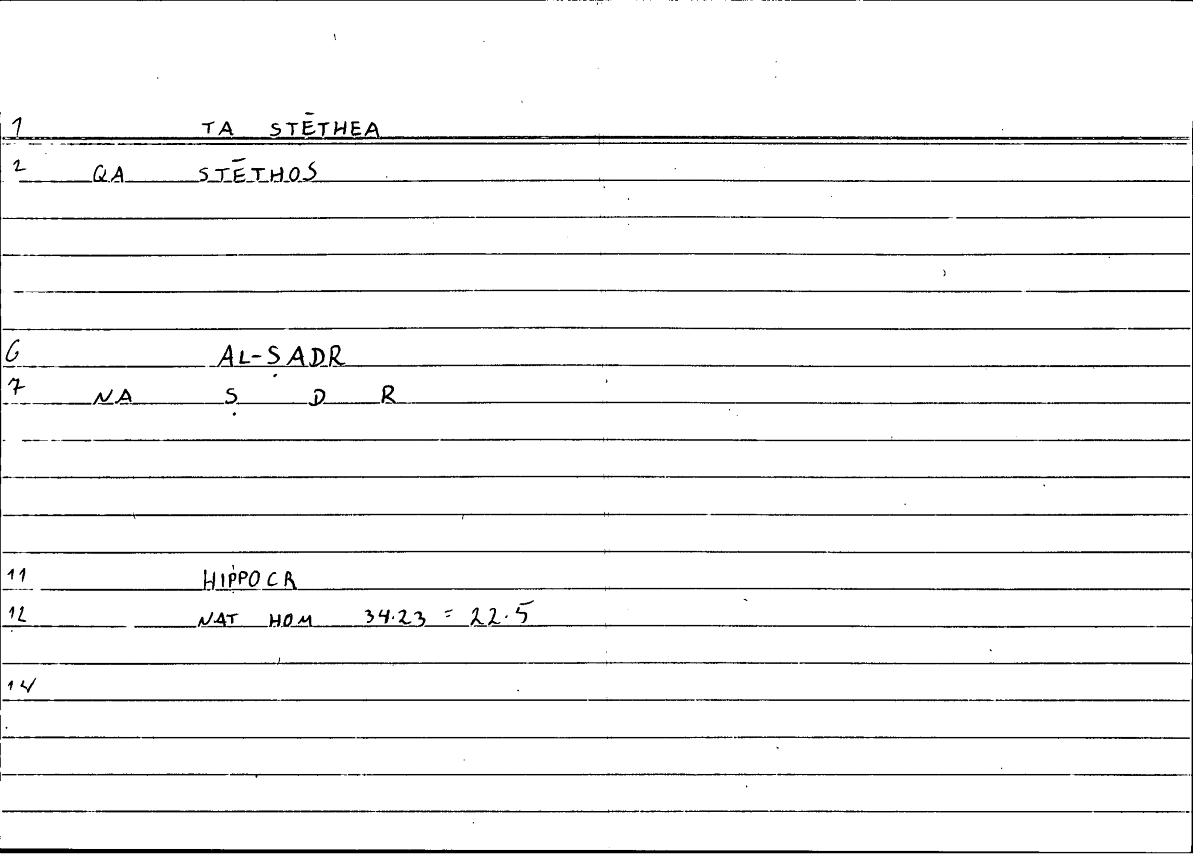 1 TA STĒTHEA
2 QA STĒTHOS
6 AL-ṢADR
7 NA Ṣ D R
11 HIPPOCR
12 NAT HOM 34.23 = 22.5
14